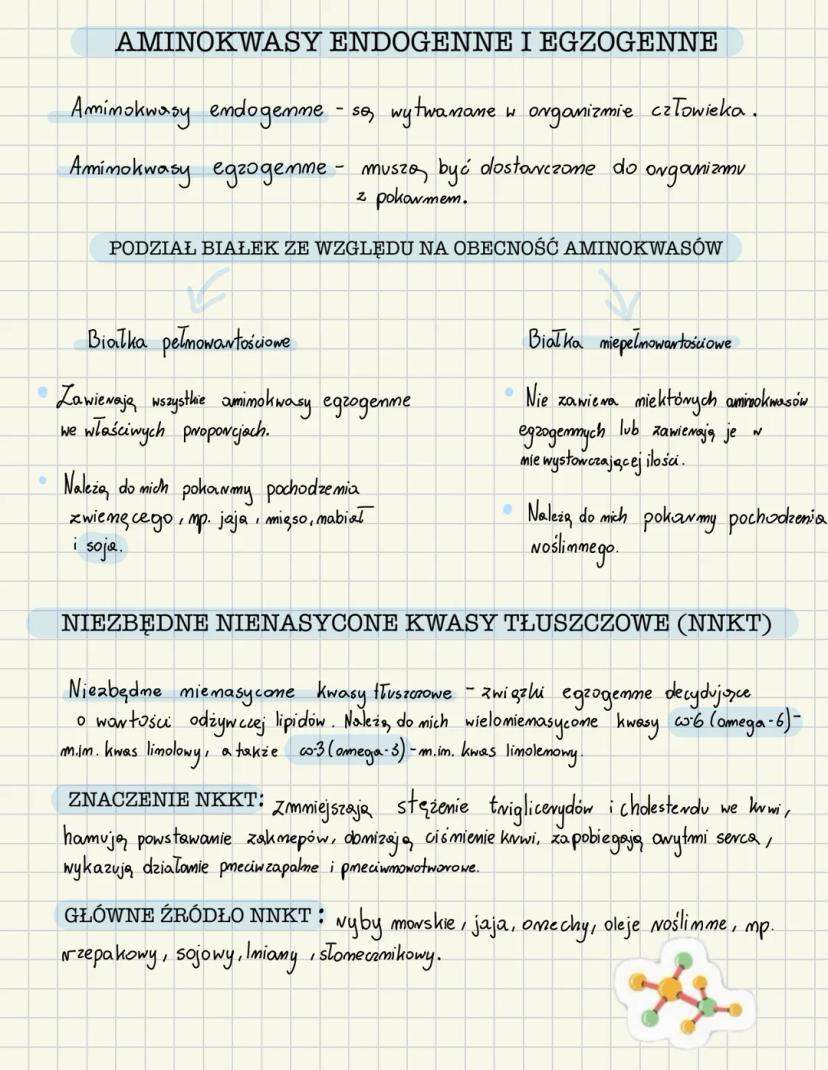 AMINOKWASY ENDOGENNE I EGZOGENNE
Aminokwasy endogenne - są wytwarzane w organizmie człowieka.
Aminokwasy egzogenne - muszą być dostarczone do organizmu
z pokarmem.
PODZIAŁ BIAŁEK ZE WZGLĘDU NA OBECNOŚĆ AMINOKWASÓW
Białka pełnowartościowe
Zawierają wszystkie aminokwasy egzogenne
we właściwych proporcjach.
Należą do nich pokarmy pochodzenia
zwierzęcego, np. jaja, mięso, nabiał
i soja.
Białka niepełnowartościowe
Nie zawiera niektórych aminokwasów
egzogennych lub zawierają je w
niewystarczającej ilości.
Należą do nich pokarmy pochodzenia
roślinnego.
NIEZBĘDNE NIENASYCONE KWASY TŁUSZCZOWE (NNKT)
Niezbędne nienasycone kwasy tłuszczowe - związki egzogenne decydujące
o wartości odżywczej lipidów. Należą do nich wielonienasycone kwasy ω-6 (omega-6)-
m.in. kwas linolowy, a także ω-3 (omega-3) - m.in. kwas linolenowy.
ZNACZENIE NKKT: zmniejszają stężenie triglicerydów i cholesterolu we krwi,
hamują powstawanie zakrzepów, obniżają ciśnienie krwi, zapobiegają arytmi serca,
wykazują działanie przeciwzapalne i przeciwnowotworowe.
GŁÓWNE ŹRÓDŁO NNKT: ryby morskie, jaja, orzechy, oleje roślinne, np.
rzepakowy, sojowy, lniany, słonecznikowy.